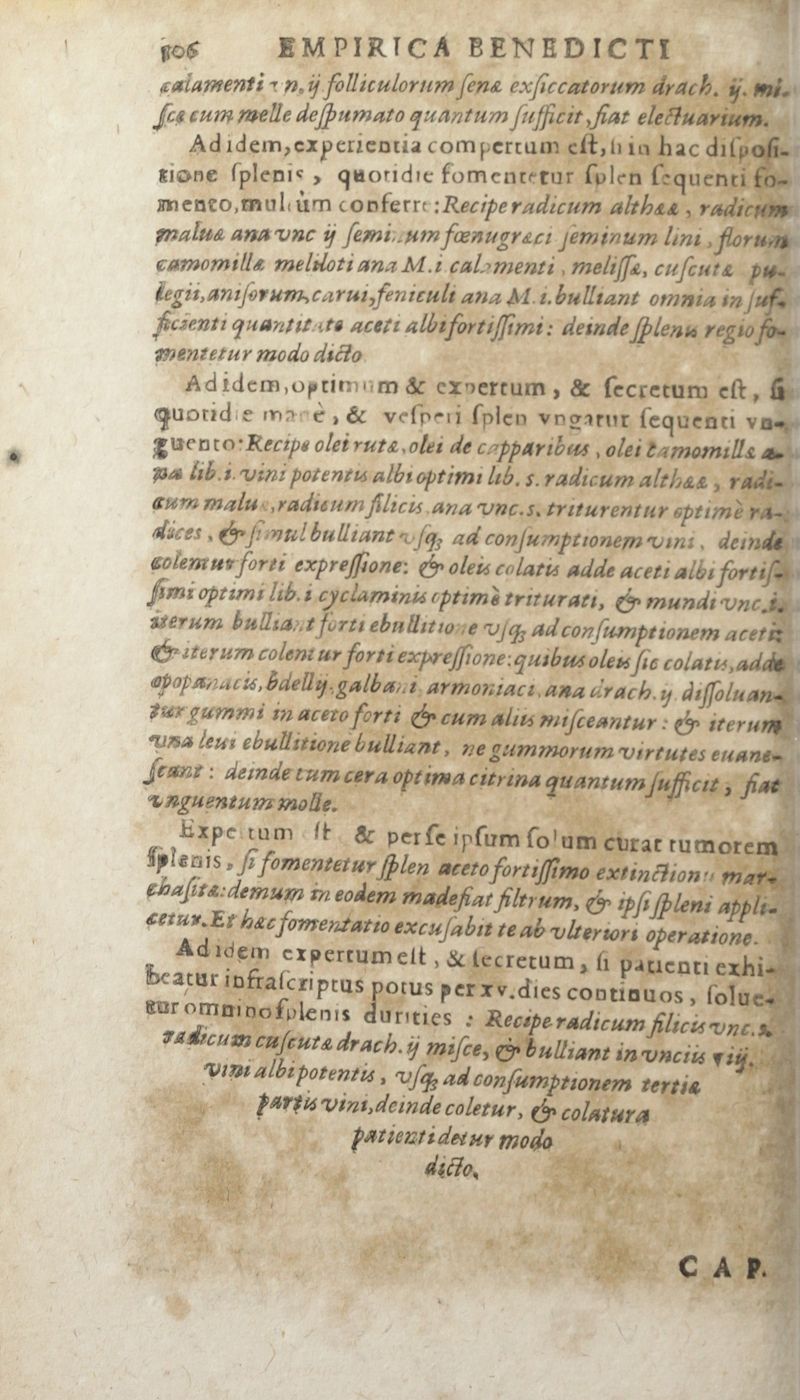 EMPIRICA BENEDICTI
calamenti n. ij folliculorum senæ exsiccatorum drach. ij. mi-
sce cum melle despumato quantum sufficit, fiat electuarium.
Ad idem, experientia compertum est, si in hac disposi-
tione splenis, quotidie fomentetur splen sequenti fo-
mento, multùm conferre: Recipe radicum altheæ, radicum
maluæ ana vnc ij seminum fœnugræci seminum lini, florum
camomillæ meliloti ana M.i calamenti, melissæ, cuscutæ pu-
legii, anisorum, carui, feniculi ana M.i. bulliant omnia in suf-
ficienti quantitate aceti albi fortissimi: deinde splenis regio fo-
mentetur modo dicto
Ad idem, optimum & expertum, & secretum est, si
quotidie manè, & vesperi splen vngatur sequenti vn-
guento: Recipe olei rutæ, olei de capparibus, olei camomillæ a-
na lib.i. vini potentis albi optimi lib. s. radicum altheæ, radi-
cum maluæ, radicum filicis ana vnc. s. triturentur optimè ra-
dices, & simul bulliant vsq; ad consumptionem vini, deinde
colentur forti expressione: & oleis colatis adde aceti albi fortis-
simi optimi lib. i cyclaminis optimè triturati, & mundi vnc. i.
iterum bulliant forti ebullitione vsq; ad consumptionem aceti:
& iterum colentur forti expressione: quibus oleis sic colatis, adde
opopanacis, bdellij, galbani armoniaci, ana drach. ij. dissoluan-
tur gummi in aceto forti & cum aliis misceantur: & iterum
vna leui ebullitione bulliant, ne gummorum virtutes euane-
scant: deinde cum cera optima citrina quantum sufficit, fiat
vnguentum molle.
Expertum est & per se ipsum solum curat tumorem
splenis, si fomentetur splen aceto fortissimo extinctionis mar-
chasitæ: demum in eodem madefiat filtrum, & ipsi spleni appli-
cetur. Et hæc fomentatio excusabit te ab vlteriori operatione.
Ad idem expertum est, & secretum, si patienti exhi-
beatur infrascriptus potus per xv. dies continuos, solue-
tur omnino splenis durities: Recipe radicum filicis vnc. s.
radicum cuscutæ drach. ij misce, & bulliant in vnciis
vini albi potentis, vsq; ad consumptionem tertiæ
partis vini, deinde coletur, & colatura
patienti detur modo
dicto.
CAP.